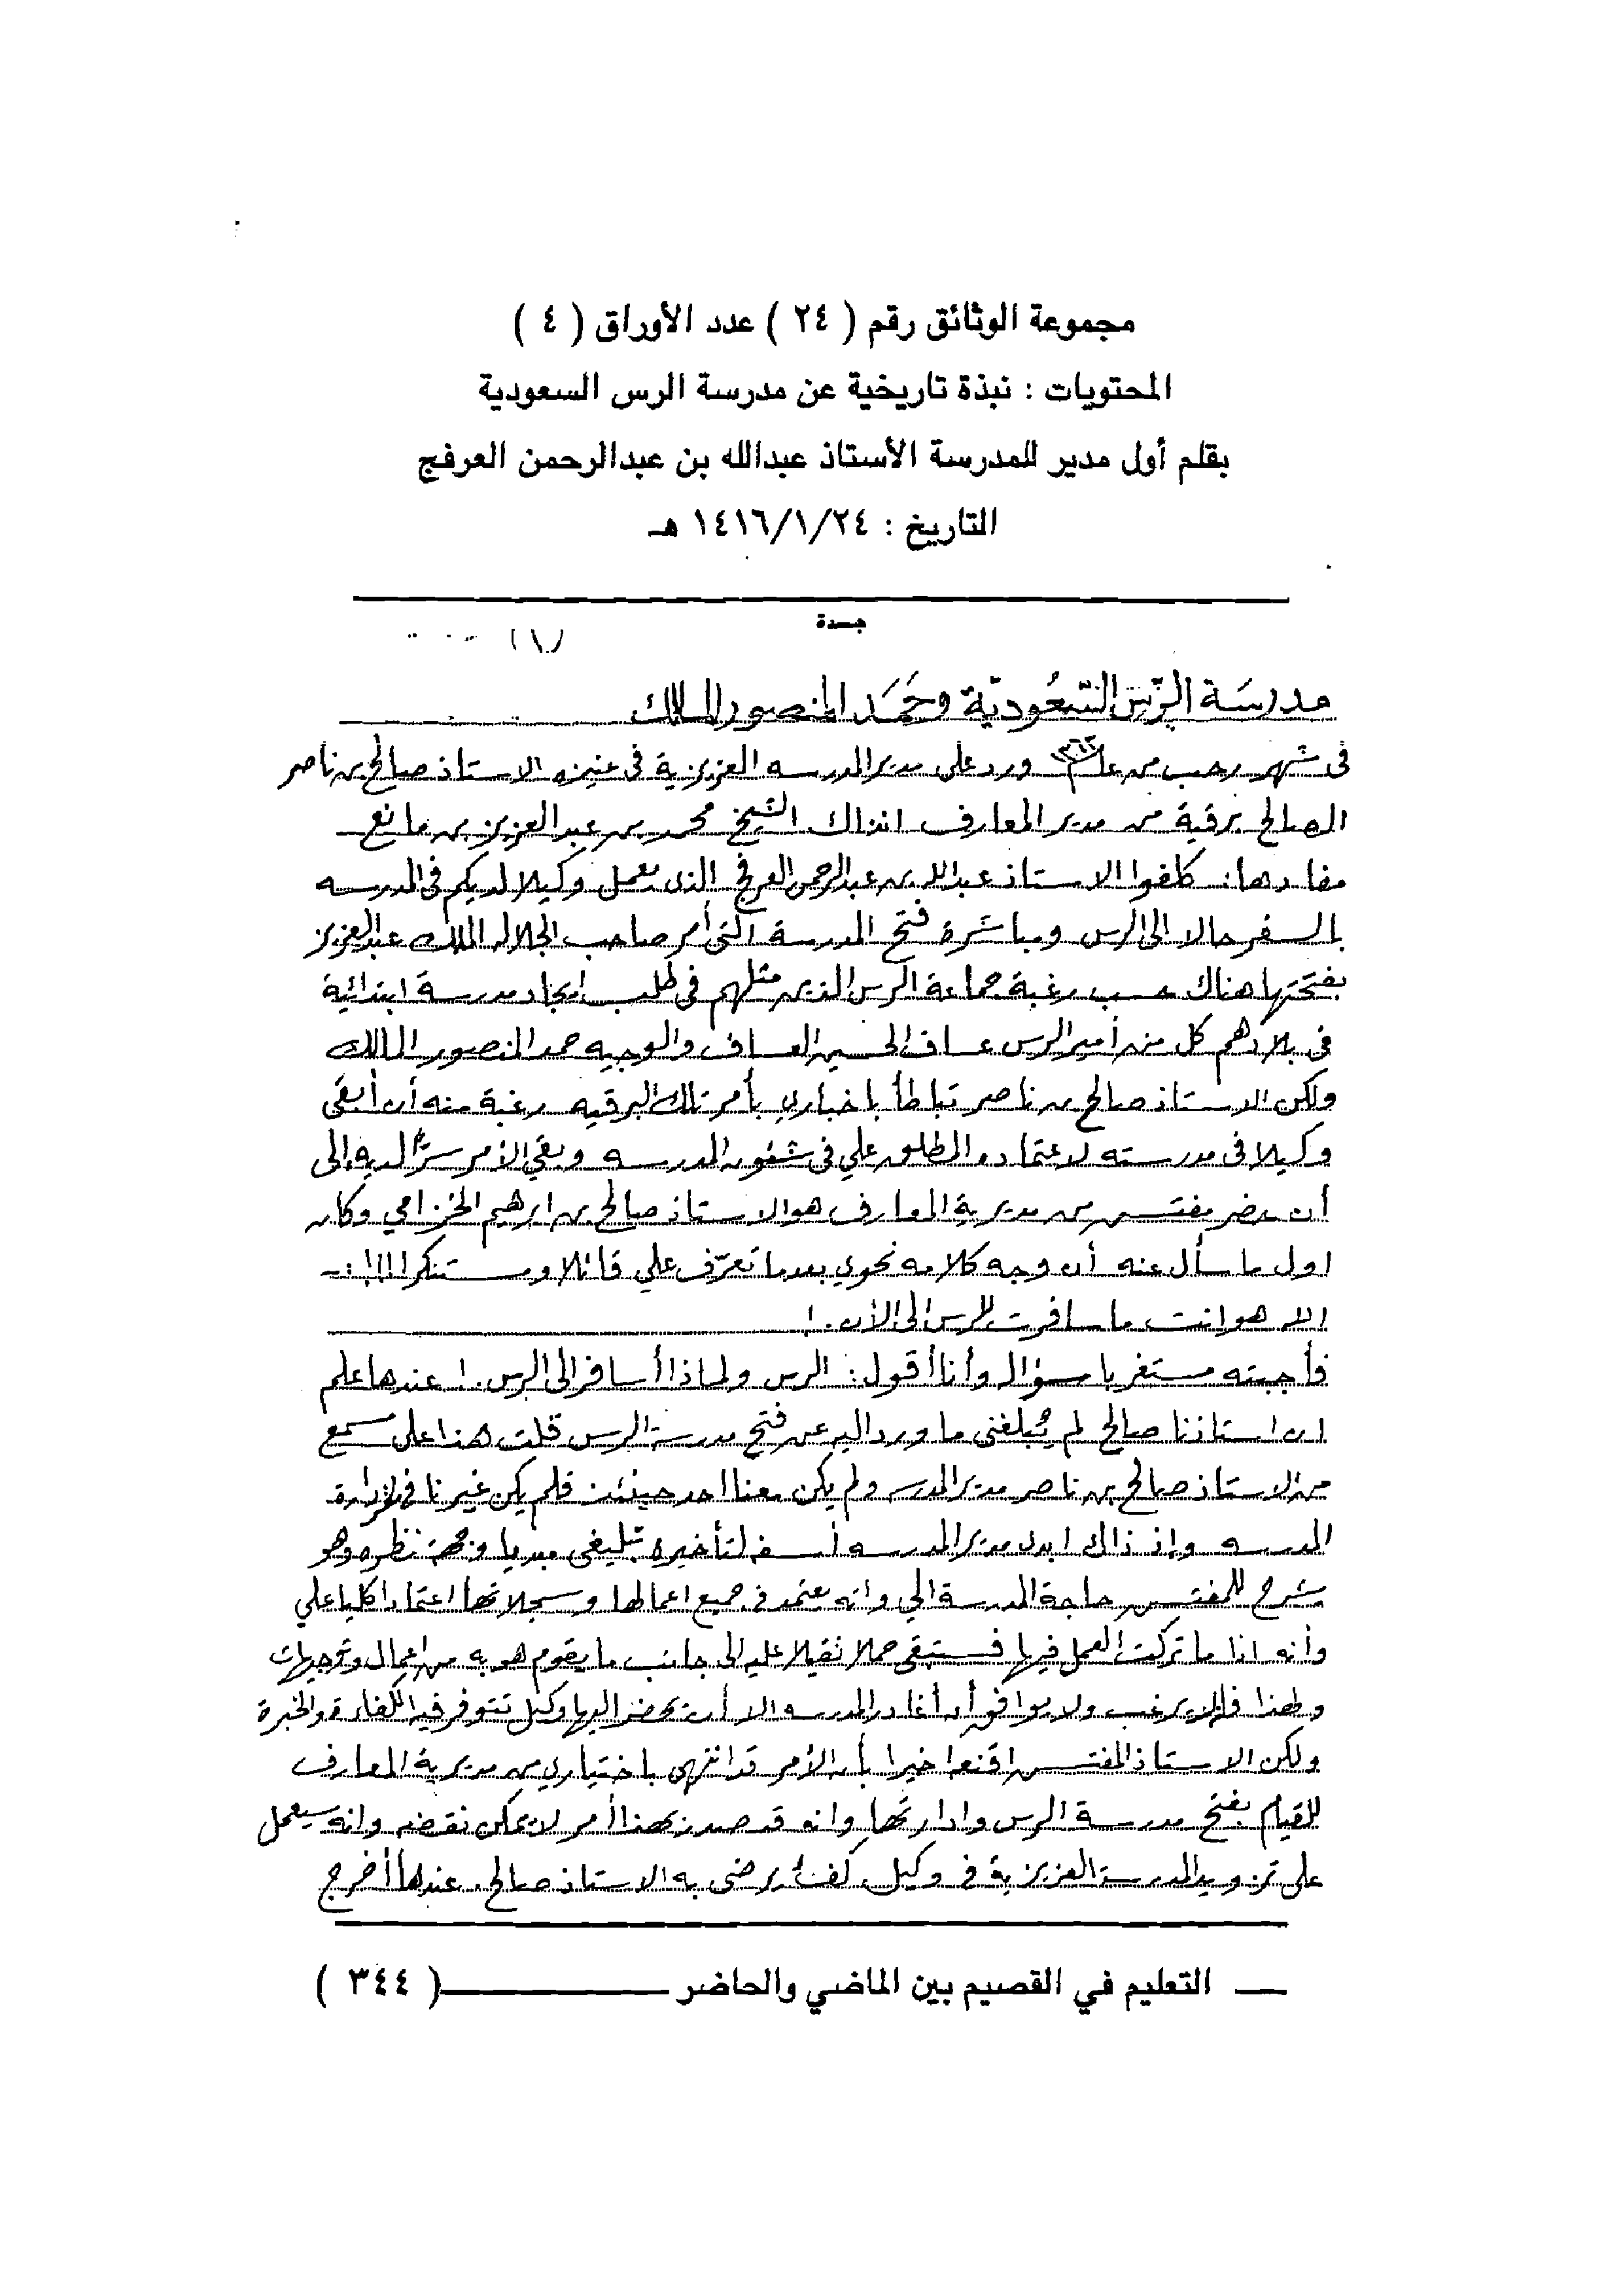 مجموعة الوثائق رقم ( ٢٤ ) عدد الأوراق ( ٤ )
المحتويات : نبذة تاريخية عن مدرسة الرس السعودية
بقلم أول مدير للمدرسة الأستاذ عبدالله بن عبدالرحمن العرفج
التاريخ : ١٤١٦/١/٢٤ هـ
جـدة
مدرسَة الرّس السّعُوديّة وحَمَد المنصور المالك
فى شهر رجب من عام ورد على مدير المدرسه العزيزية فى عنيزه الاستاذ صالح بن ناصر
الصالح برقية من مدير المعارف انذاك الشيخ محمد بن عبد العزيز بن مانع
مفادها : كلفوا الاستاذ عبدالله بن عبدالرحمن العرفج الذى يعمل وكيلا لديكم فى المدرسه
بالسفر حالا الى الرس ومباشرة فتح المدرسة التى أمر صاحب الجلاله الملك عبدالعزيز
بفتحها هناك حسب رغبة جماعة الرس الذين مثلهم فى طلب ايجاد مدرسة ابتدائية
فى بلادهم كل من أمير الرس عساف الحسين العساف والوجيه حمد المنصور المالك
ولكن الاستاذ صالح بن ناصر تباطأ باخباري بأمر تلك البرقيه رغبة منه أن أبقى
وكيلا فى مدرسته لاعتماده المطلق علي فى شئون المدرسه وبقي الأمر سرًّا لديه إلى
أن حضر مفتش من مديرية المعارف هو الاستاذ صالح بن ابرهيم الخزامي وكان
اول ما سأل عنه أن وجه كلامه نحوي بعدما تعرّف علي قائلا ومستنكرا !!! :-
الله هو انت ما سافرت للرس الى الأن . !
فأجبته مستغربا سؤاله وأنا أقول : الرس ولماذا أسافر الى الرس . ! عندها علم
ان استاذنا صالح لم يُبلغنى ما ورد اليه عن فتح مدرسة الرس قلت هذا على مسمع
من الاستاذ صالح بن ناصر مدير المدرسه ولم يكن معنا احد حينئذ فلم يكن غيرنا فى ادارة
المدرسه وإذ ذاك ابدى مدير المدرسه أسفه لتأخيره تبليغى مبديا وجهة نظره وهو
يشرح للمفتش حاجة المدرسة الي وانه يعتمد فى جميع اعمالها وسجلاتها اعتمادا كليا علي
وأنه اذا ما تركت العمل فيها فستبقى حملا ثقيلا عليه الى جانب ما يقوم هو به من اعمال وتوجيهات
ولهذا فإنه لا يرغب ولا يوافق أن أغادر المدرسه الا أن يحضر اليها وكيل تتوفر فيه الكفاءة والخبرة
ولكن الاستاذ المفتش اقنعه اخيرا بأن الأمر قد انتهى باختياري من مديرية المعارف
للقيام بفتح مدرسة الرس وادارتها وانه قد صدر بهذا أمر لا يمكن نقضه وانه سيعمل
على تزويد المدرسة العزيزية فى وكيل كفئ يرضى به الاستاذ صالح . عندها أخرج
— التعليم في القصيم بين الماضي والحاضر ——— ( ٣٤٤ )